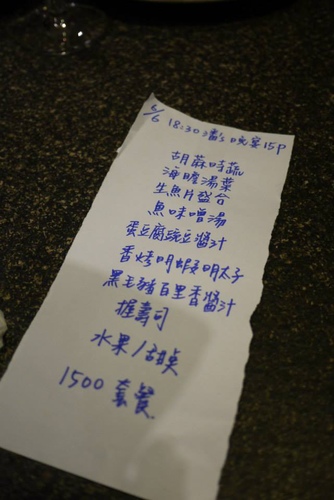 6/6 18:30 潘's 晚宴 15P
胡蔴時蔬
海瞻湯葉
生魚片盛合
魚味噌湯
蛋豆腐豌豆醬汁
香烤明蝦明太子
黑毛豬百里香醬汁
握壽司
水果/甜点
1500 套餐